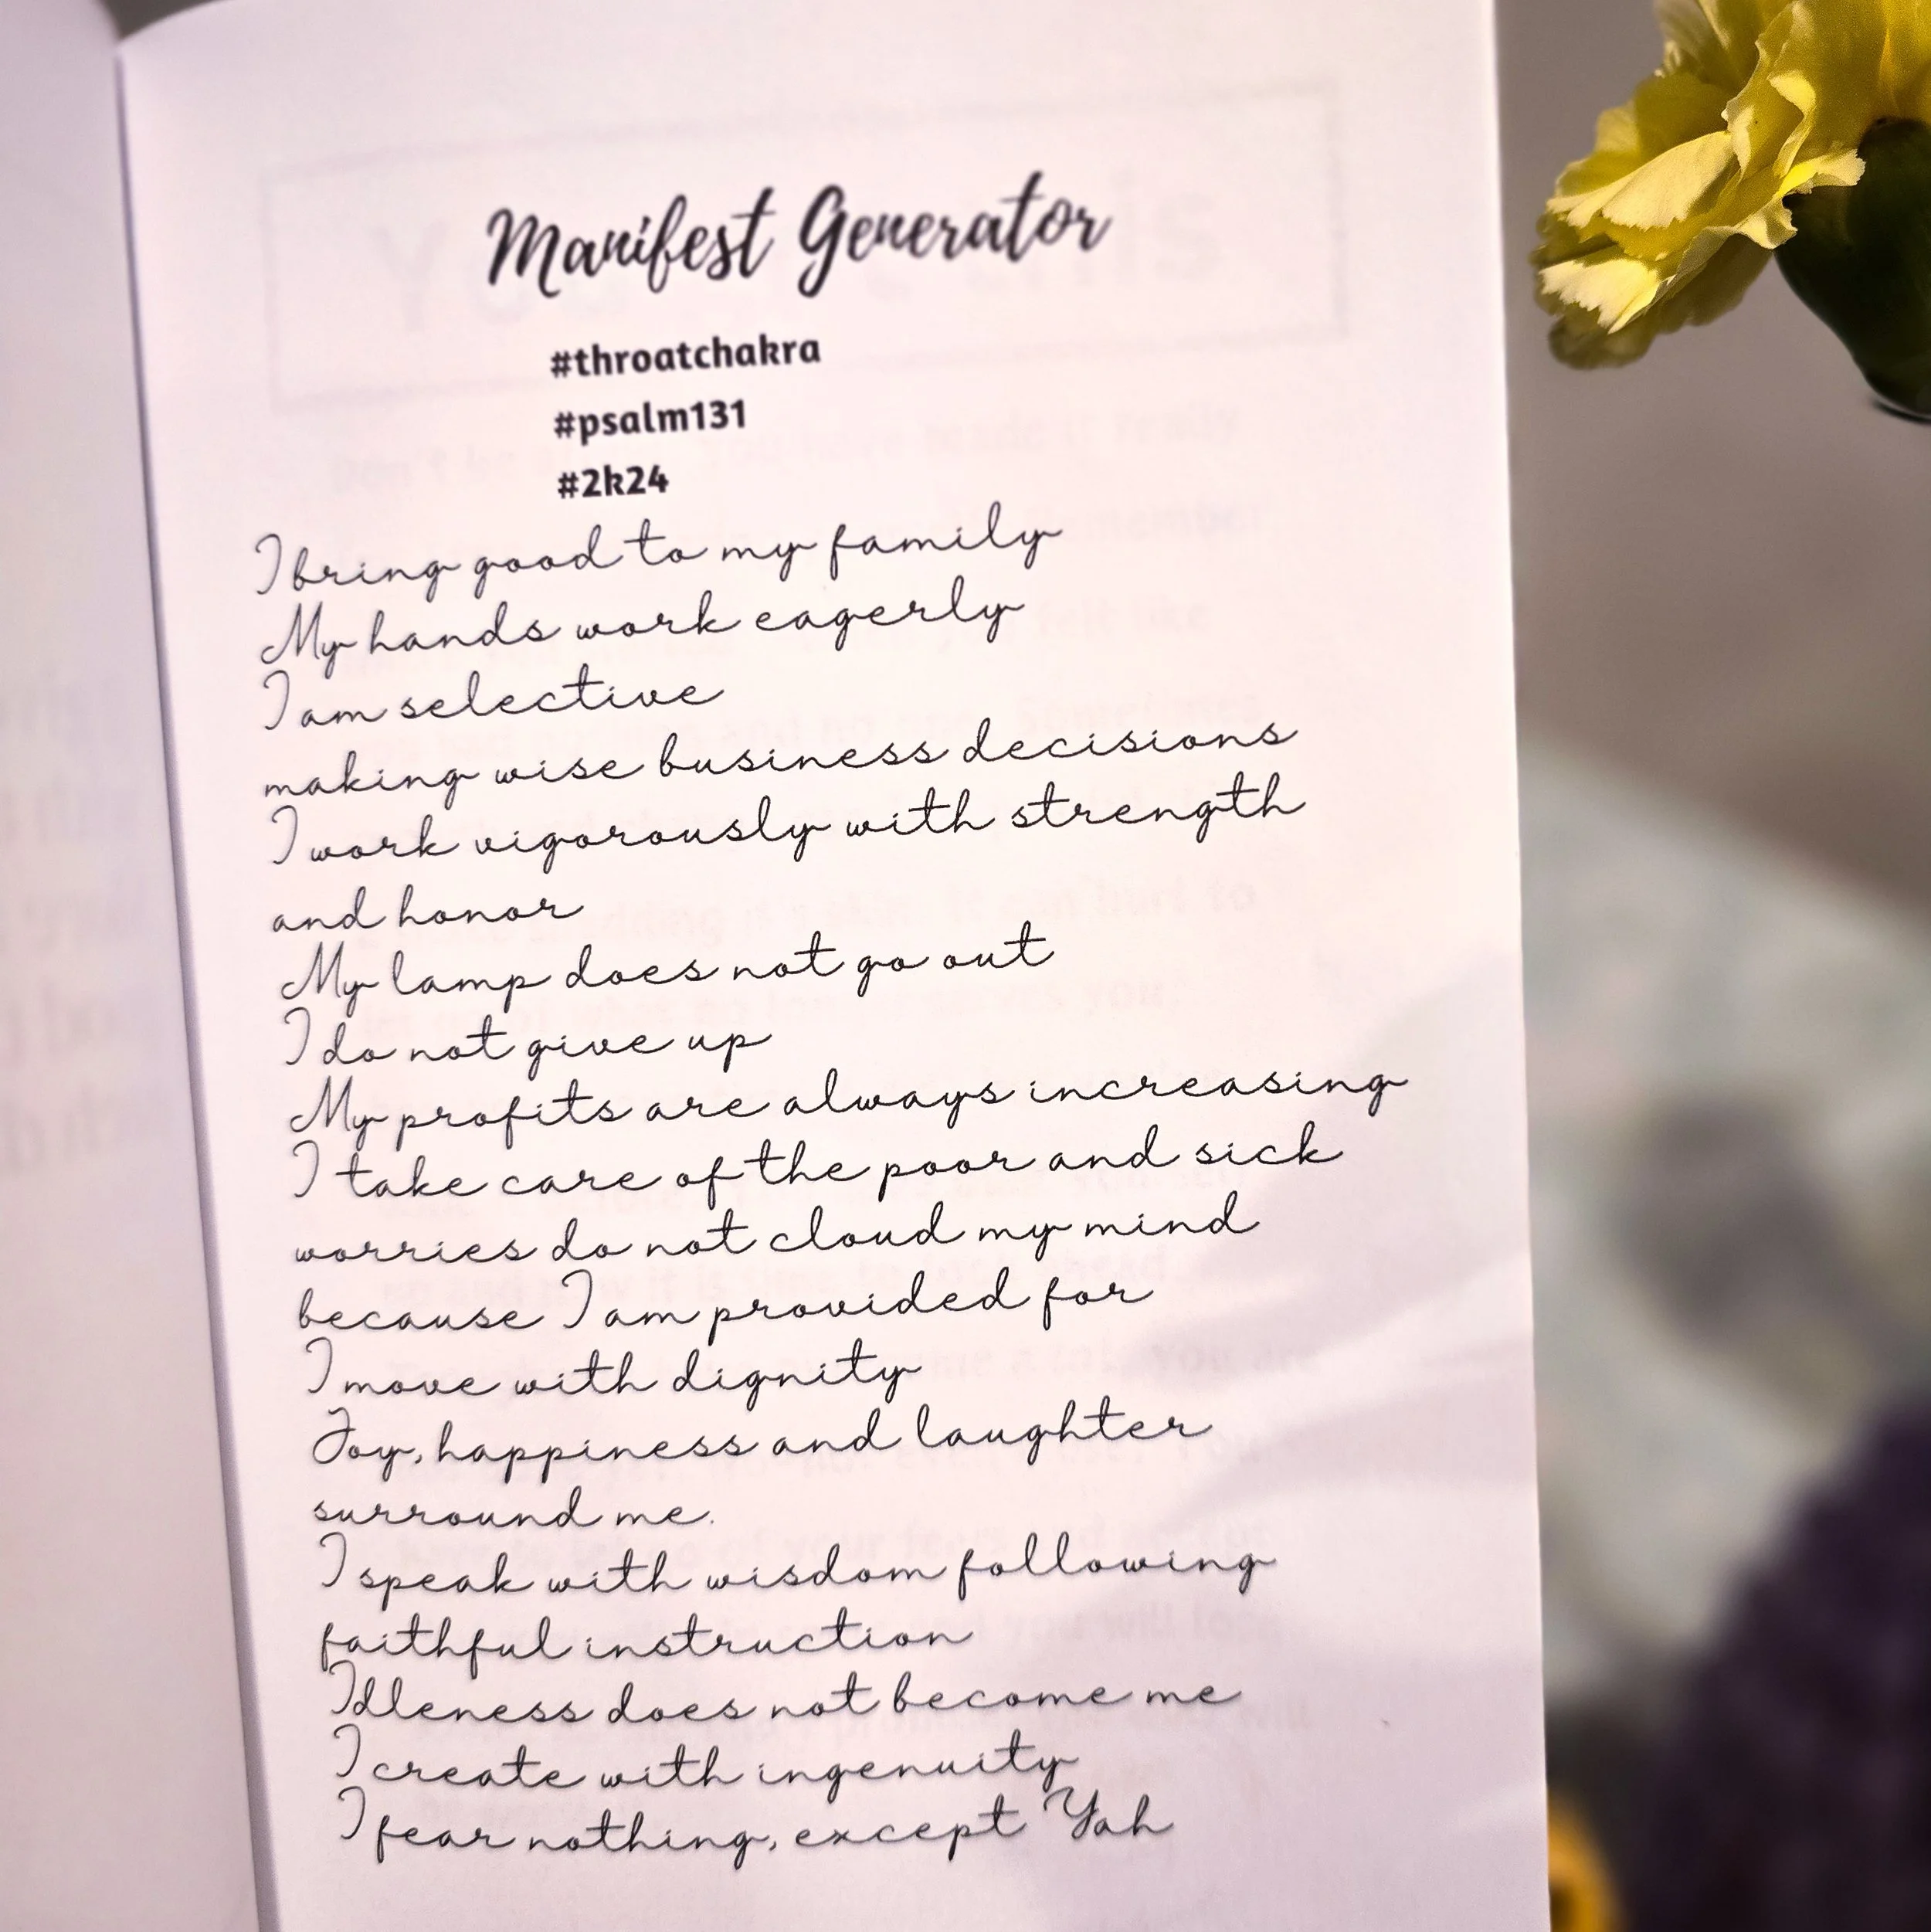 Manifest Generator
#throatchakra
#psalm131
#2k24
I bring good to my family
My hands work eagerly
I am selective
making wise business decisions
I work vigorously with strength
and honor
My lamp does not go out
I do not give up
My profits are always increasing
I take care of the poor and sick
worries do not cloud my mind
because I am provided for
I move with dignity
Joy, happiness and laughter
surround me.
I speak with wisdom following
faithful instruction
Idleness does not become me
I create with ingenuity
I fear nothing, except Yah